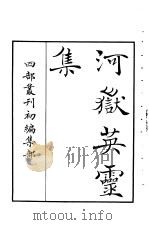 河嶽英靈
集
四部叢刊初編集部
mtoou.info